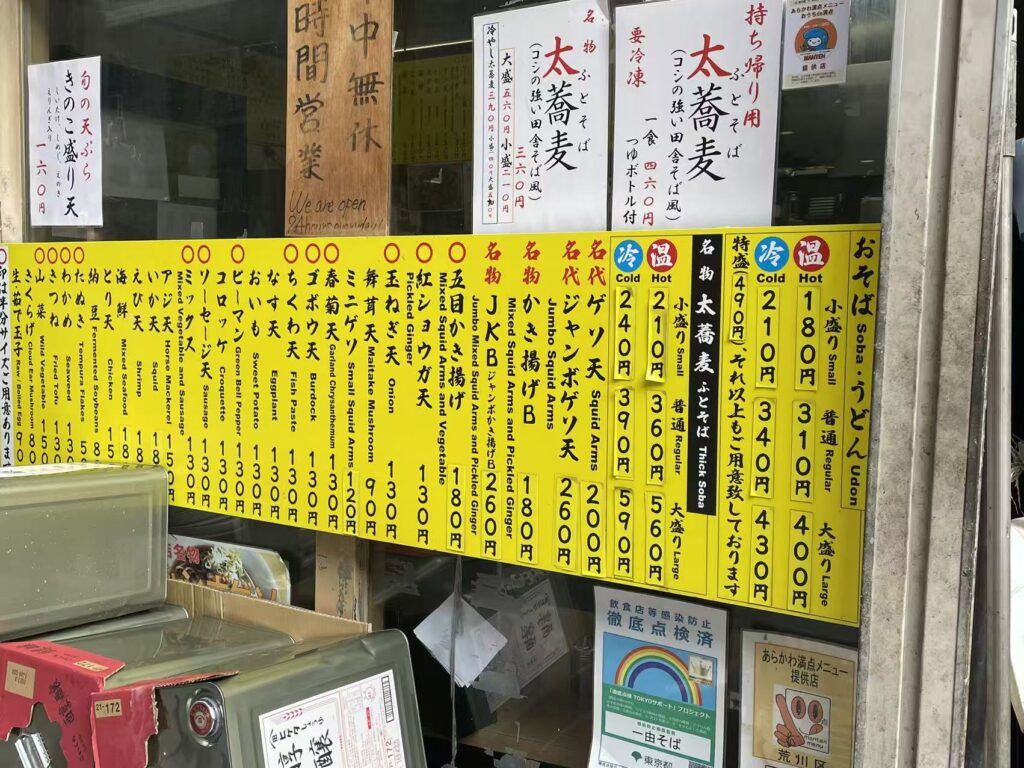 中無休
時間営業
We are open
24hours everyday!!
旬の天ぷら
きのこ盛り天
しいたけ、しめじ、えのき
えりんぎ入り
一六〇円
名物 ふとそば
太蕎麦
(コシの強い田舎そば風)
三六〇円
大盛五六〇円 小盛二一〇円
持ち帰り用
ふとそば
太蕎麦
(コシの強い田舎そば風)
要冷凍
一食 四六〇円
つゆボトル付
あらかわ満点メニュー
おうちde満点
MANTEN
提供店
おそば Soba・うどん Udon
小盛り Small 普通 Regular 大盛り Large
温 Hot 180円 310円 400円
冷 Cold 210円 340円 430円
特盛(490円)、それ以上もご用意致しております
名物 太蕎麦 ふとそば Thick Soba
小盛り Small 普通 Regular 大盛り Large
温 Hot 210円 360円 560円
冷 Cold 240円 390円 590円
名代 ゲソ天 Squid Arms 200円
名代 ジャンボゲソ天 Jumbo Squid Arms 260円
名物 かき揚げB Mixed Squid Arms and Pickled Ginger 180円
名物 JKB ジャンボかき揚げB Jumbo Mixed Squid Arms and Pickled Ginger 260円
五目かき揚げ Mixed Squid Arms and Vegetable 180円
紅ショウガ天 Pickled Ginger 130円
玉ねぎ天 Onion 130円
舞茸天 Maitake Mushroom 90円
ミニゲソ Small Squid Arms 120円
春菊天 Garland Chrysanthemum 130円
ゴボウ天 Burdock 130円
ちくわ天 Fish Paste 130円
なす天 Eggplant 130円
おいも Sweet Potato 130円
ピーマン Green Bell Pepper 130円
コロッケ Croquette 130円
ソーセージ天 Sausage 130円
ミックス Mixed Vegetable and Sausage 130円
アジ天 Horse Mackerel 150円
いか天 Squid
えび天 Shrimp
海鮮 Mixed Seafood
とり天 Chicken
納豆 Fermented Soybeans
たぬき Tempura Flakes
わかめ Seaweed
きつね Fried Tofu
山菜 Wild Vegetable
きくらげ Cloud Ear Mushroom
生・茹で玉子 Raw / Boiled Egg 90
印は半分サイズご用意あります
店名物
21-172
飲食店等感染防止
徹底点検済
「徹底点検 TOKYOサポート」プロジェクト
一由そば
東京都
あらかわ満点メニュー
提供店
manten
menu
荒川区